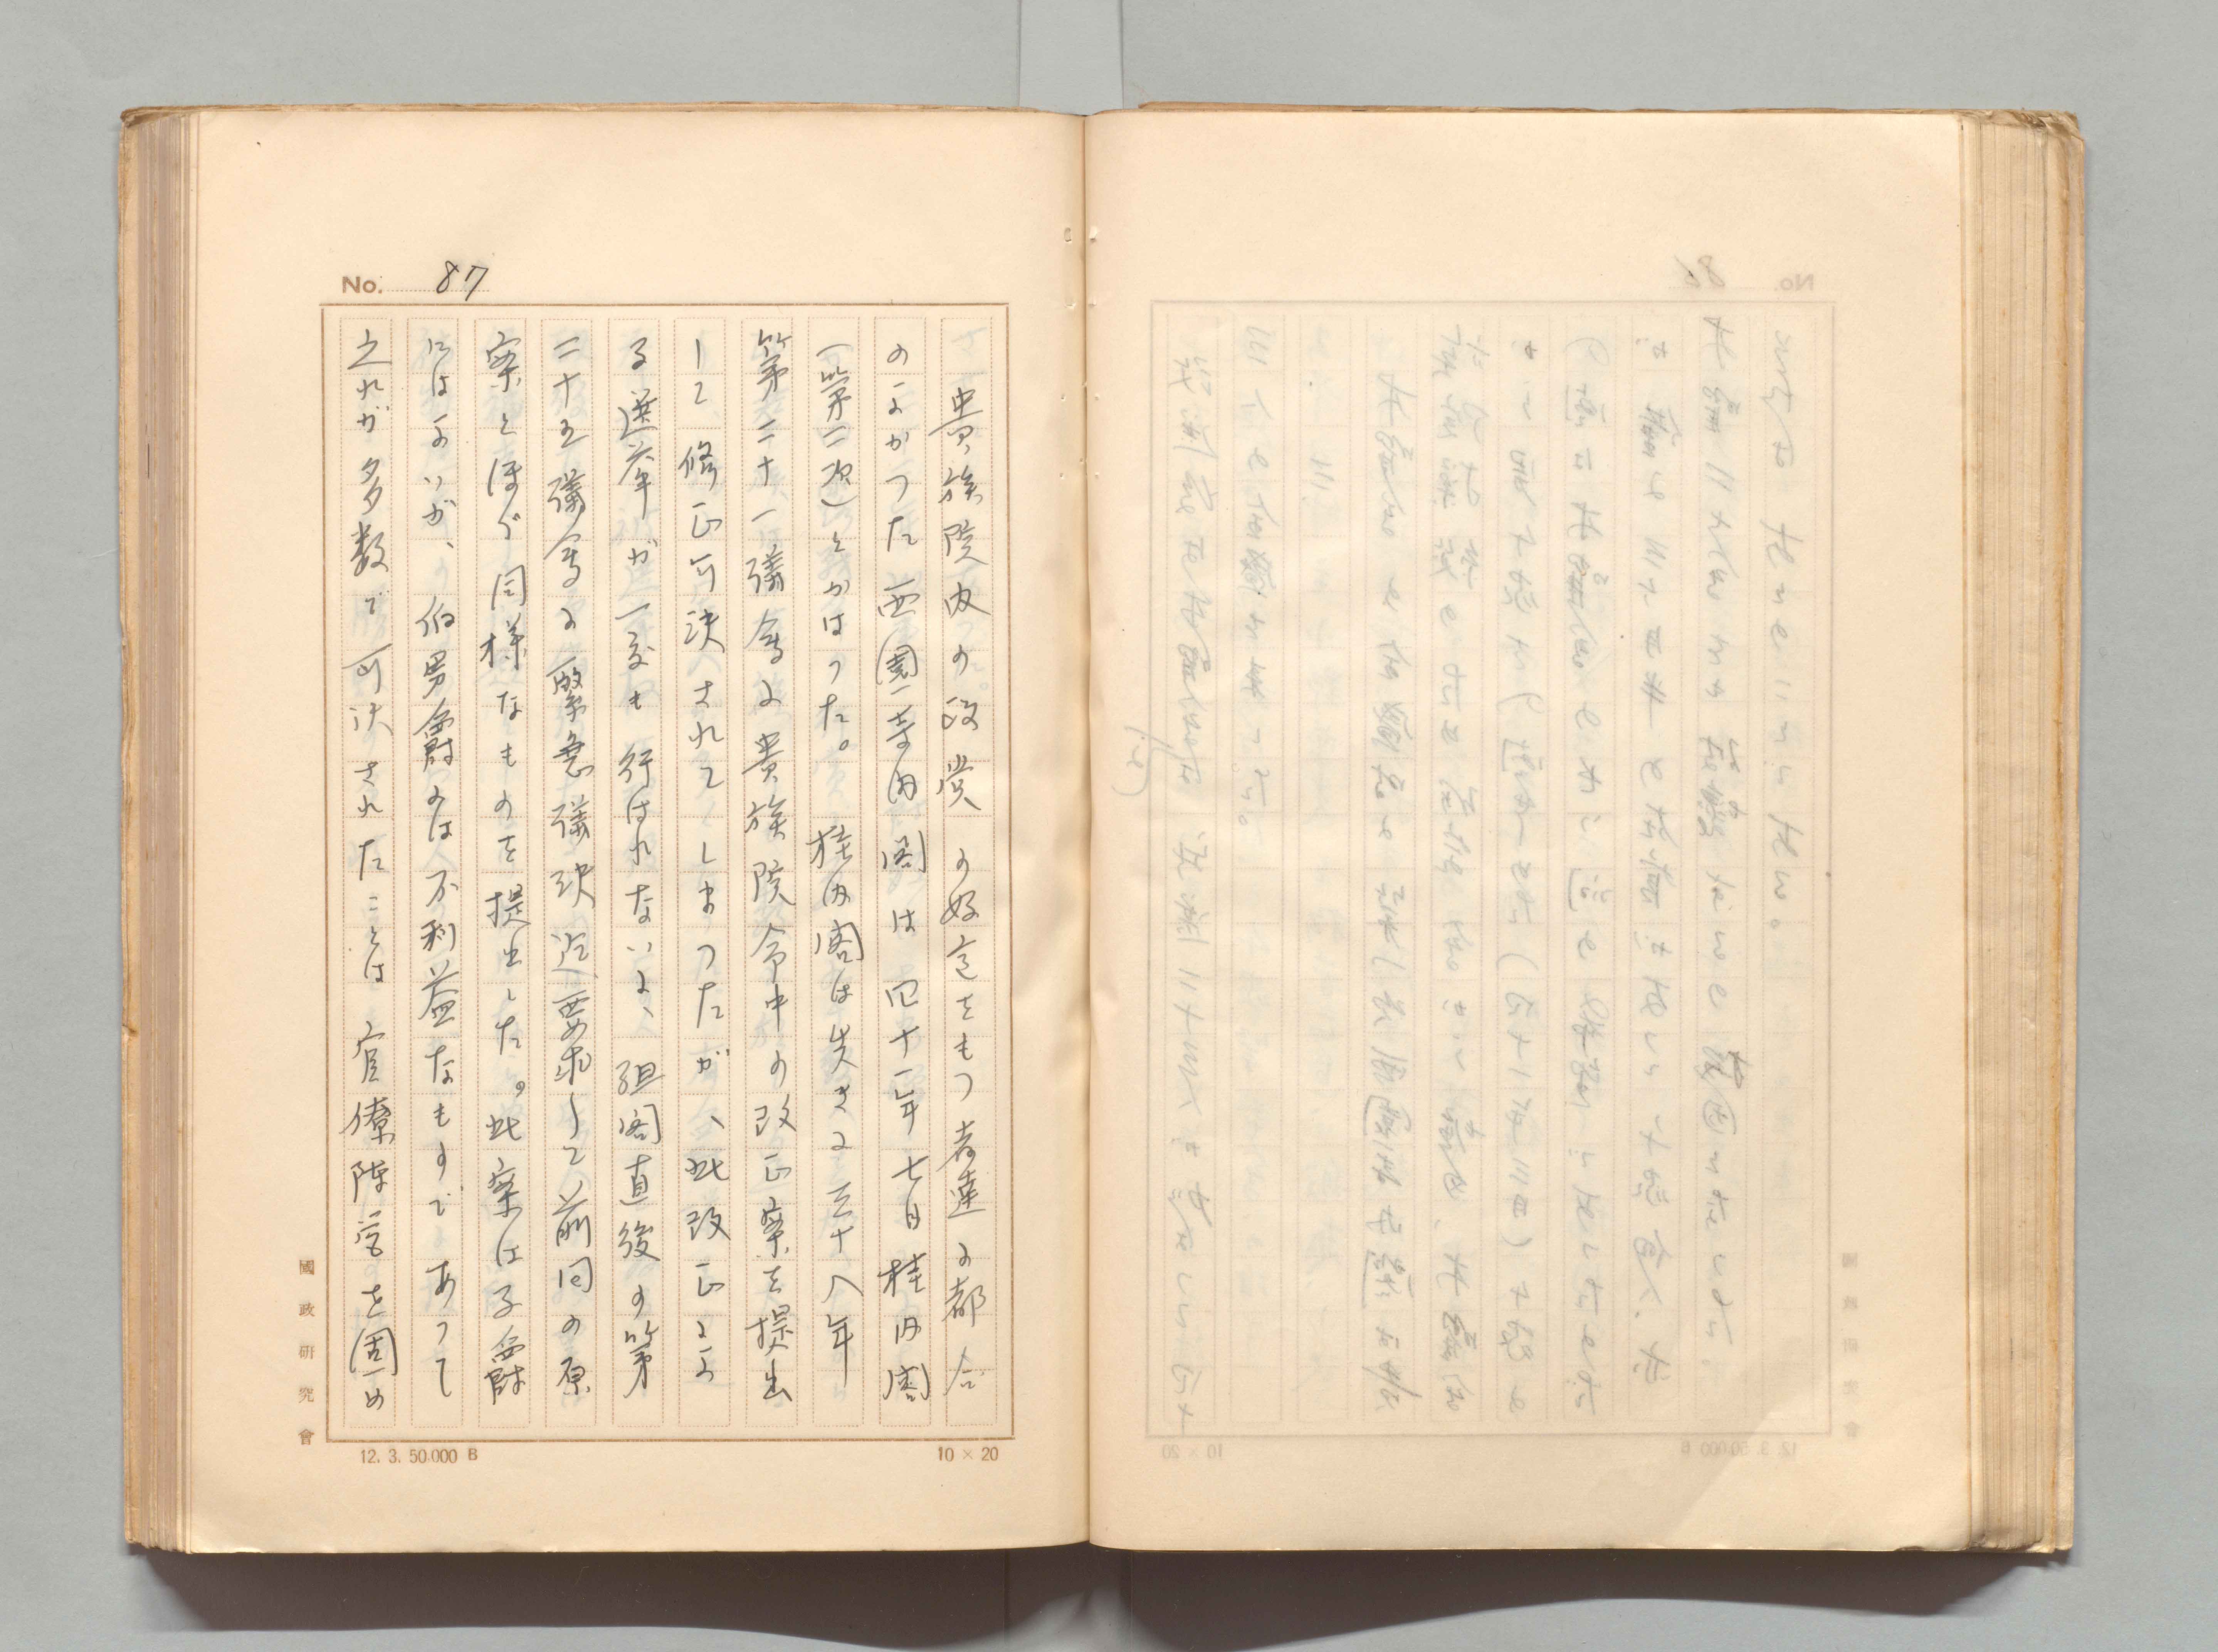 No. 87
貴族院内の政党の好意をもつ者達の都合
のよかつた西園寺内閣は四十一年七月桂内閣
(第二次)とかはつた。桂内閣は先きに三十八年
第二十一議会に貴族院令中の改正案を提出
して修正可決されてしまつたが、此改正によ
る選挙が一度も行はれないに、組閣直後の第
二十五議会に緊急議決迄要求して前同の原
案とほゞ同様なものを提出した。此案は子爵
にはよいが、伯男爵には不利益なものであつて
之れが多数で可決されたことは官僚陣営を固め
國政研究會
12. 3. 50.000 B
10 × 20